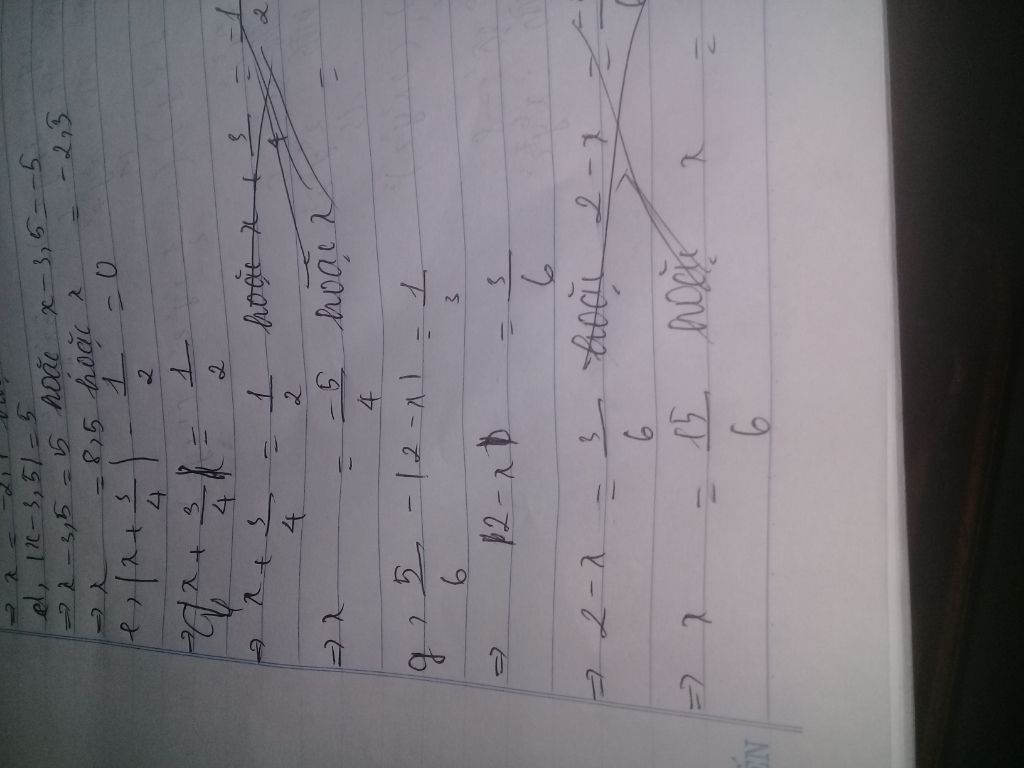 ⇒ x = -2,1
d, |x - 3,5| = 5
⇒ x - 3,5 = 5 hoặc x - 3,5 = -5
⇒ x = 8,5 hoặc x = -2,3
e, |x + 3/4| - 1/2 = 0
⇒ |x + 3/4| = 1/2
⇒ x + 3/4 = 1/2 hoặc x + 3/4 = -1/2
⇒ x = -5/4 hoặc x =
g, 5/6 - |2 - x| = 1/3
⇒ |2 - x| = 3/6
⇒ 2 - x = 3/6 hoặc 2 - x =
⇒ x = 15/6 hoặc x =